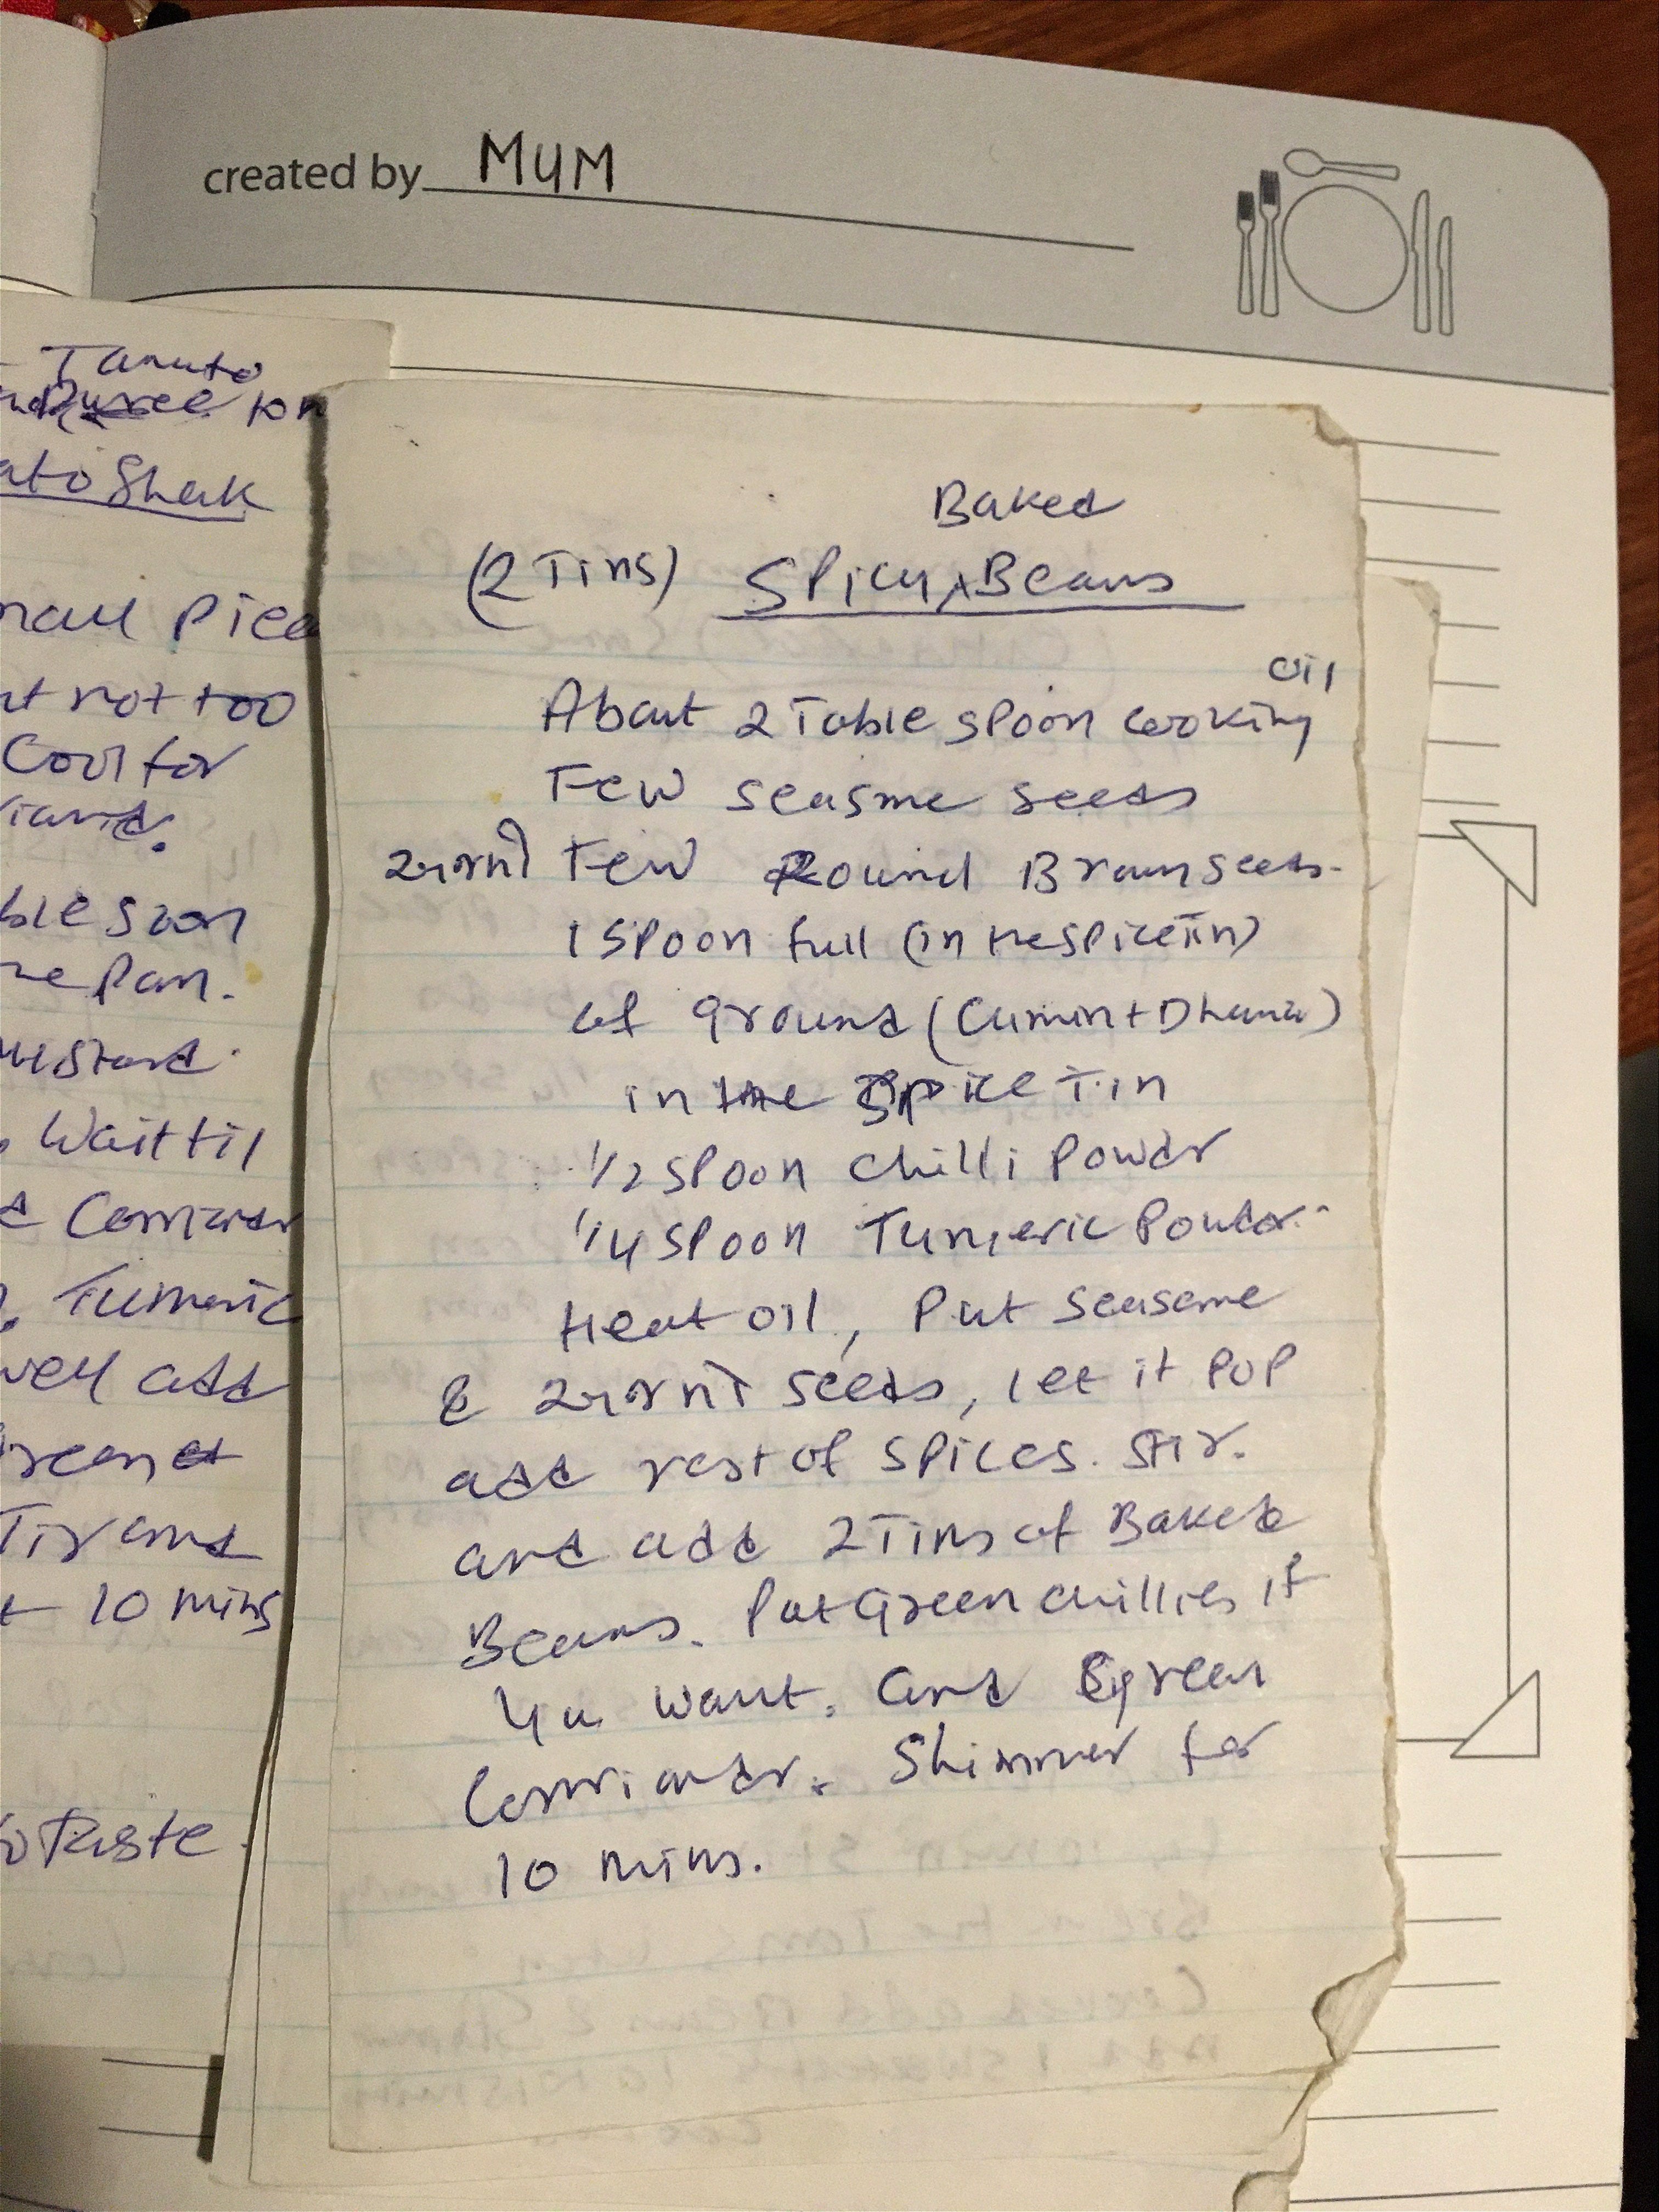 created by MUM
Tamato
Puree
Shak
not too
Cool for
Pan.
Wait til
Tumeric
add
10 mins
Taste
Baked
(2 Tins) Spicy Beans
oil
About 2 Table spoon cooking
Few seasme seeds
Few Round Brown seeds.
1 spoon full (in the spice Tin)
of ground (Cumin + Dhania)
in the spice Tin
1/2 spoon chilli Powdr
1/4 spoon Tumeric Powder.
Heat oil, Put seaseme
& seeds, let it pop
add rest of spices. Stir.
and add 2 Tins of Baked
Beans. Put Green chillies if
yu want. and green
Corriandr. Shimmer for
10 mins.